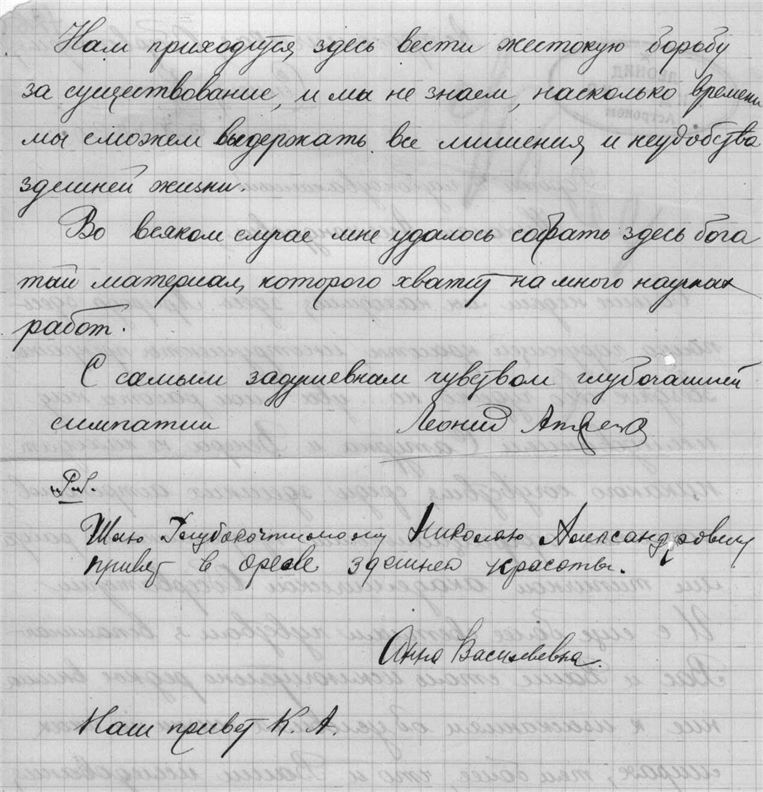 Нам приходится здесь вести жестокую борьбу
за существование, и мы не знаем, насколько времени
мы сможем выдержать все лишения и неудобства
здешней жизни.
Во всяком случае мне удалось собрать здесь бога
тый материал, которого хватит на много научных
работ.
С самым задушевным чувством глубочайшей
симпатии Леонид
P.S.
Шлю Глубокочтимому Николаю Александровичу
привет в ореоле здешней красоты.
Анна Васильевна.
Наш привет К. А.